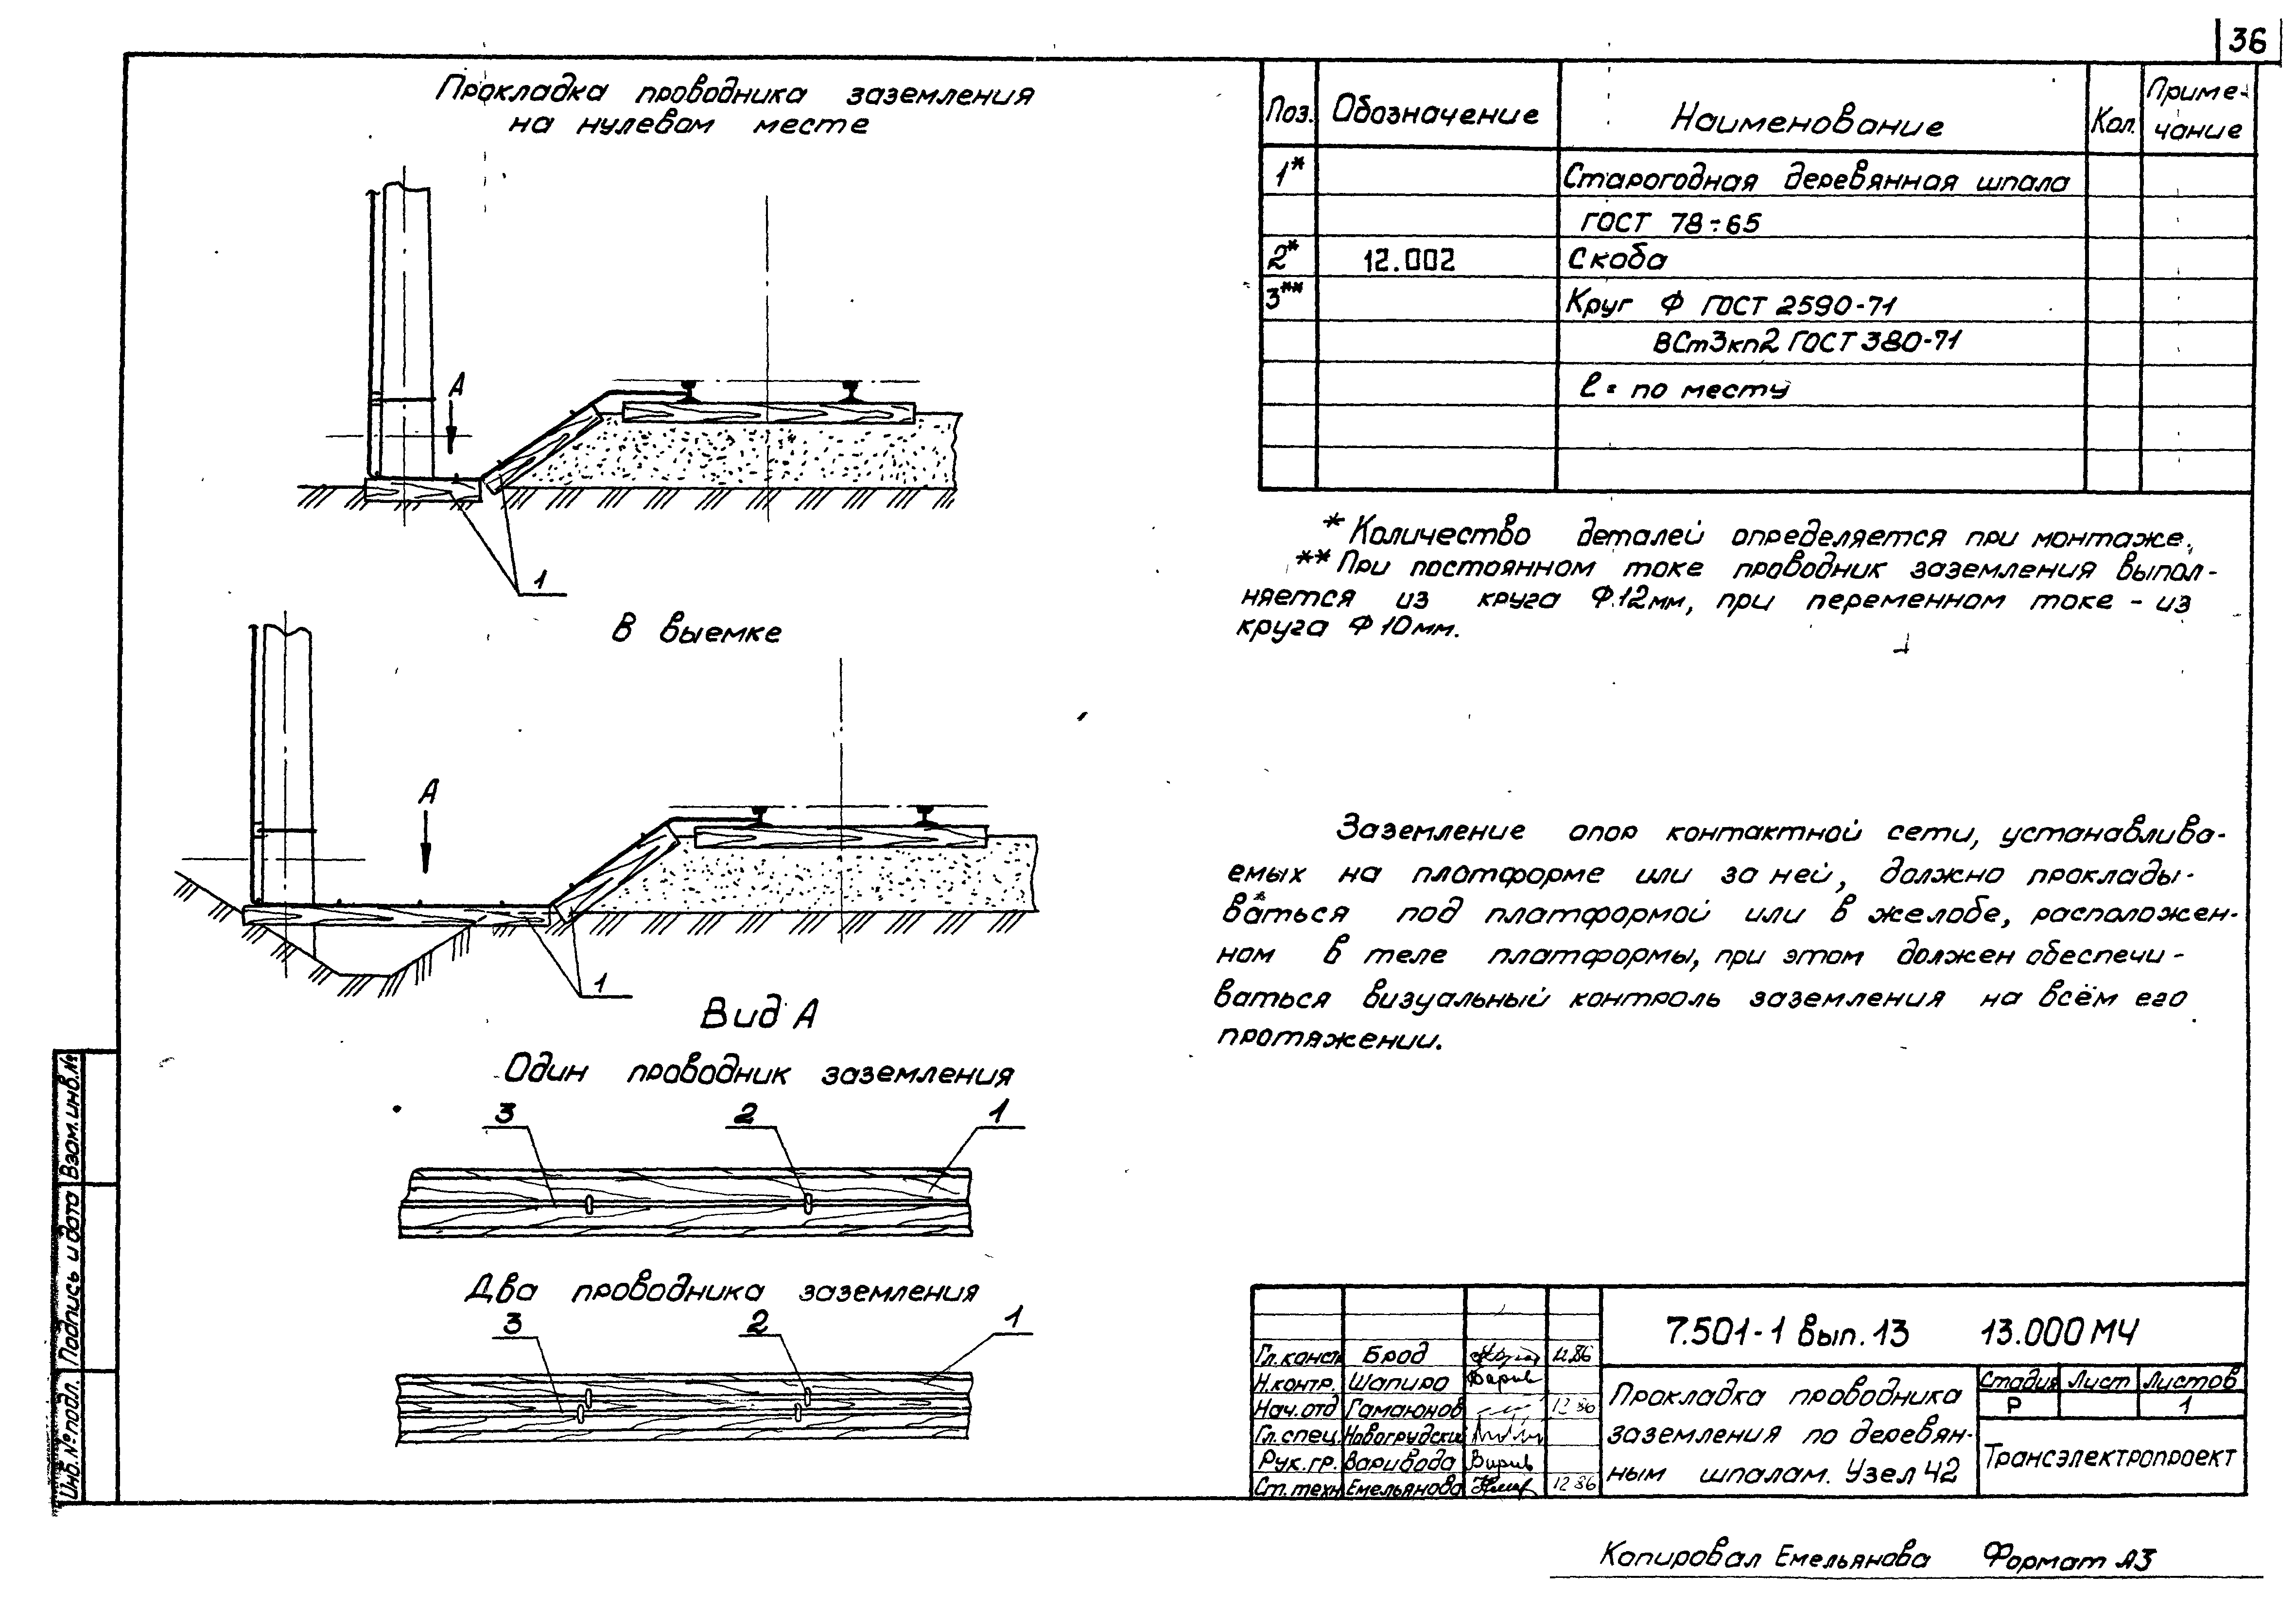 36
Прокладка проводника заземления
на нулевом месте
А
1
В выемке
А
1
Вид А
Один проводник заземления
3 2 1
Два проводника заземления
3 2 1
Поз. Обозначение Наименование Кол. Приме-
чание
1* Старогодная деревянная шпала
ГОСТ 78÷65
2* 12.002 Скоба
3** Круг Ф ГОСТ 2590-71
ВСт3кп2 ГОСТ 380-71
ℓ = по месту
* Количество деталей определяется при монтаже.
** При постоянном токе проводник заземления выпол-
няется из круга Ф 12мм, при переменном токе - из
круга Ф 10мм.
Заземление опор контактной сети, устанавлива-
емых на платформе или за ней, должно проклады-
ваться под платформой или в желобе, расположен-
ном в теле платформы, при этом должен обеспечи-
ваться визуальный контроль заземления на всём его
протяжении.
Взам.инв.№
Подпись и дата
Инв.№ подл.
7.501-1 вып.13 13.000МЧ
Гл.конст. Брод 12.86
Н.контр. Шапиро
Нач.отд Гамаюнов 12 86
Гл.спец. Новогрудский
Рук.гр. Варивода
Ст.техн Емельянова 12 86
Прокладка проводника
заземления по деревян-
ным шпалам. Узел 42
Стадия Лист Листов
Р 1
Трансэлектропроект
Копировал Емельянова Формат А3